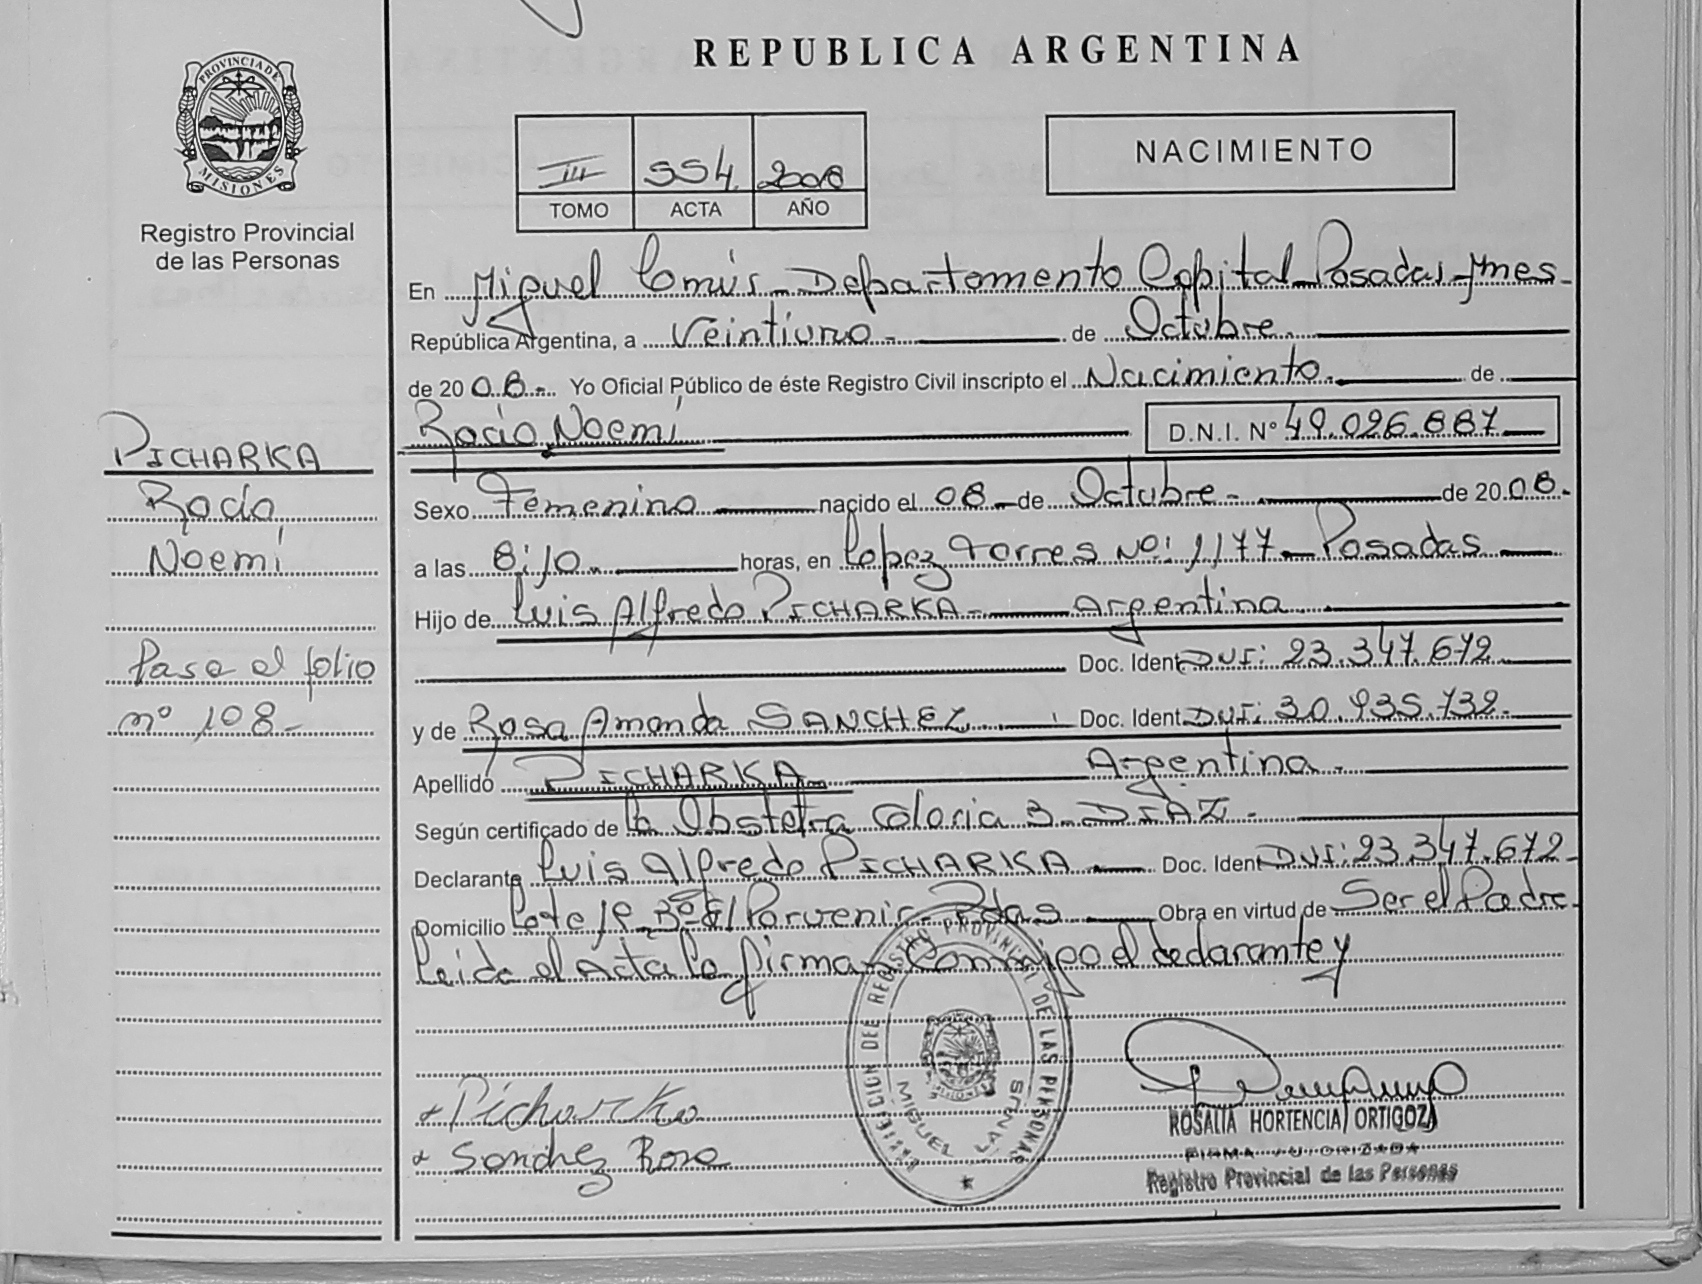 REPUBLICA ARGENTINA
PROVINCIA DE
MISIONES
Registro Provincial
de las Personas
III 554 2008
TOMO ACTA AÑO
NACIMIENTO
En Miguel Lanús - Departamento Capital - Posadas - Mnes -
República Argentina, a Veintiuno - de Octubre -
de 2008 - Yo Oficial Público de éste Registro Civil inscripto el Nacimiento. de
Rocío Noemí D.N.I. Nº 49.026.887
PICHARKA
Rocío
Noemí
Pase al folio
nº 108 -
Sexo Femenino nacido el 08 - de Octubre - de 2008 -
a las 8:10 horas, en Lopez Torres Nº: 1177 - Posadas
Hijo de Luis Alfredo PICHARKA - Argentina
Doc. Ident DNI: 23.347.672
y de Rosa Amanda SANCHEZ Doc. Ident DNI: 30.935.732 -
Apellido PICHARKA Argentina -
Según certificado de la Obstetra Gloria B. DIAZ -
Declarante Luis Alfredo PICHARKA Doc. Ident DNI: 23.347.672 -
Domicilio Lote 18 Porvenir - Pdas Obra en virtud de Ser el Padre -
Leida el Acta la firman Conmigo el declarante y
Picharka
Sanchez Rosa
REGISTRO PROVINCIAL DE LAS PERSONAS
MIGUEL LANUS
ROSALIA HORTENCIA ORTIGOZA
FIRMA AUTORIZADA
Registro Provincial de las Personas